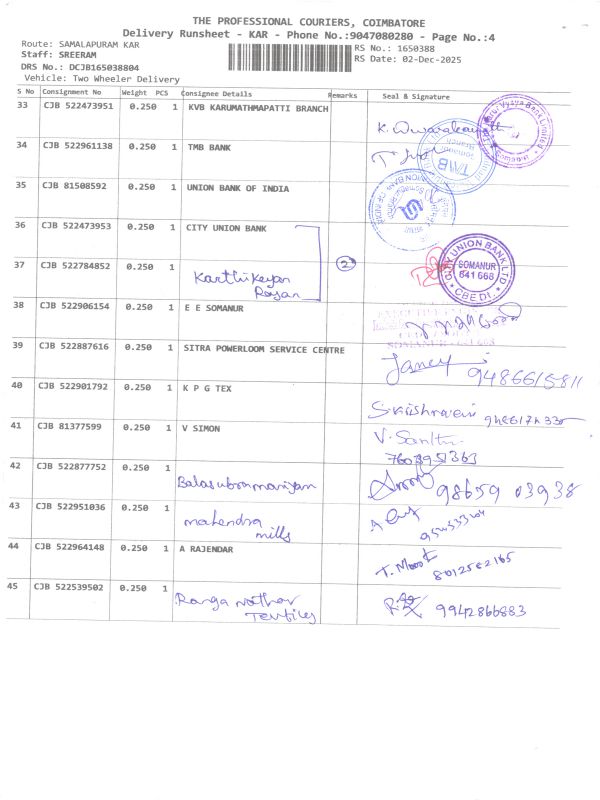 THE PROFESSIONAL COURIERS, COIMBATORE
Delivery Runsheet - KAR - Phone No.:9047080280 - Page No.:4
Route: SAMALAPURAM KAR
RS No.: 1650388
Staff: SREERAM
RS Date: 02-Dec-2025
DRS No.: DCJB165038804
Vehicle: Two Wheeler Delivery
S No Consignment No Weight PCS Consignee Details Remarks Seal & Signature
33 CJB 522473951 0.250 1 KVB KARUMATHMAPATTI BRANCH
34 CJB 522961138 0.250 1 TMB BANK
TMB
35 CJB 81508592 0.250 1 UNION BANK OF INDIA
36 CJB 522473953 0.250 1 CITY UNION BANK
CITY UNION BANK LTD
SOMANUR
641 668
CBE DT.
37 CJB 522784852 0.250 1 Karthikeyan
Rajan
2
38 CJB 522906154 0.250 1 E E SOMANUR
39 CJB 522887616 0.250 1 SITRA POWERLOOM SERVICE CENTRE
Janey
9486615811
40 CJB 522901792 0.250 1 K P G TEX
41 CJB 81377599 0.250 1 V SIMON
V. Santhi
7603951363
42 CJB 522877752 0.250 1 Balasubramaniyam
98659 03938
43 CJB 522951036 0.250 1 mahendra
mills
44 CJB 522964148 0.250 1 A RAJENDAR
8012562165
45 CJB 522539502 0.250 1 Ranga nathar
Textiles
9942866883